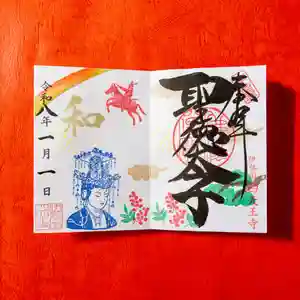 奉拝
聖徳太子
和
令和八年一月一日